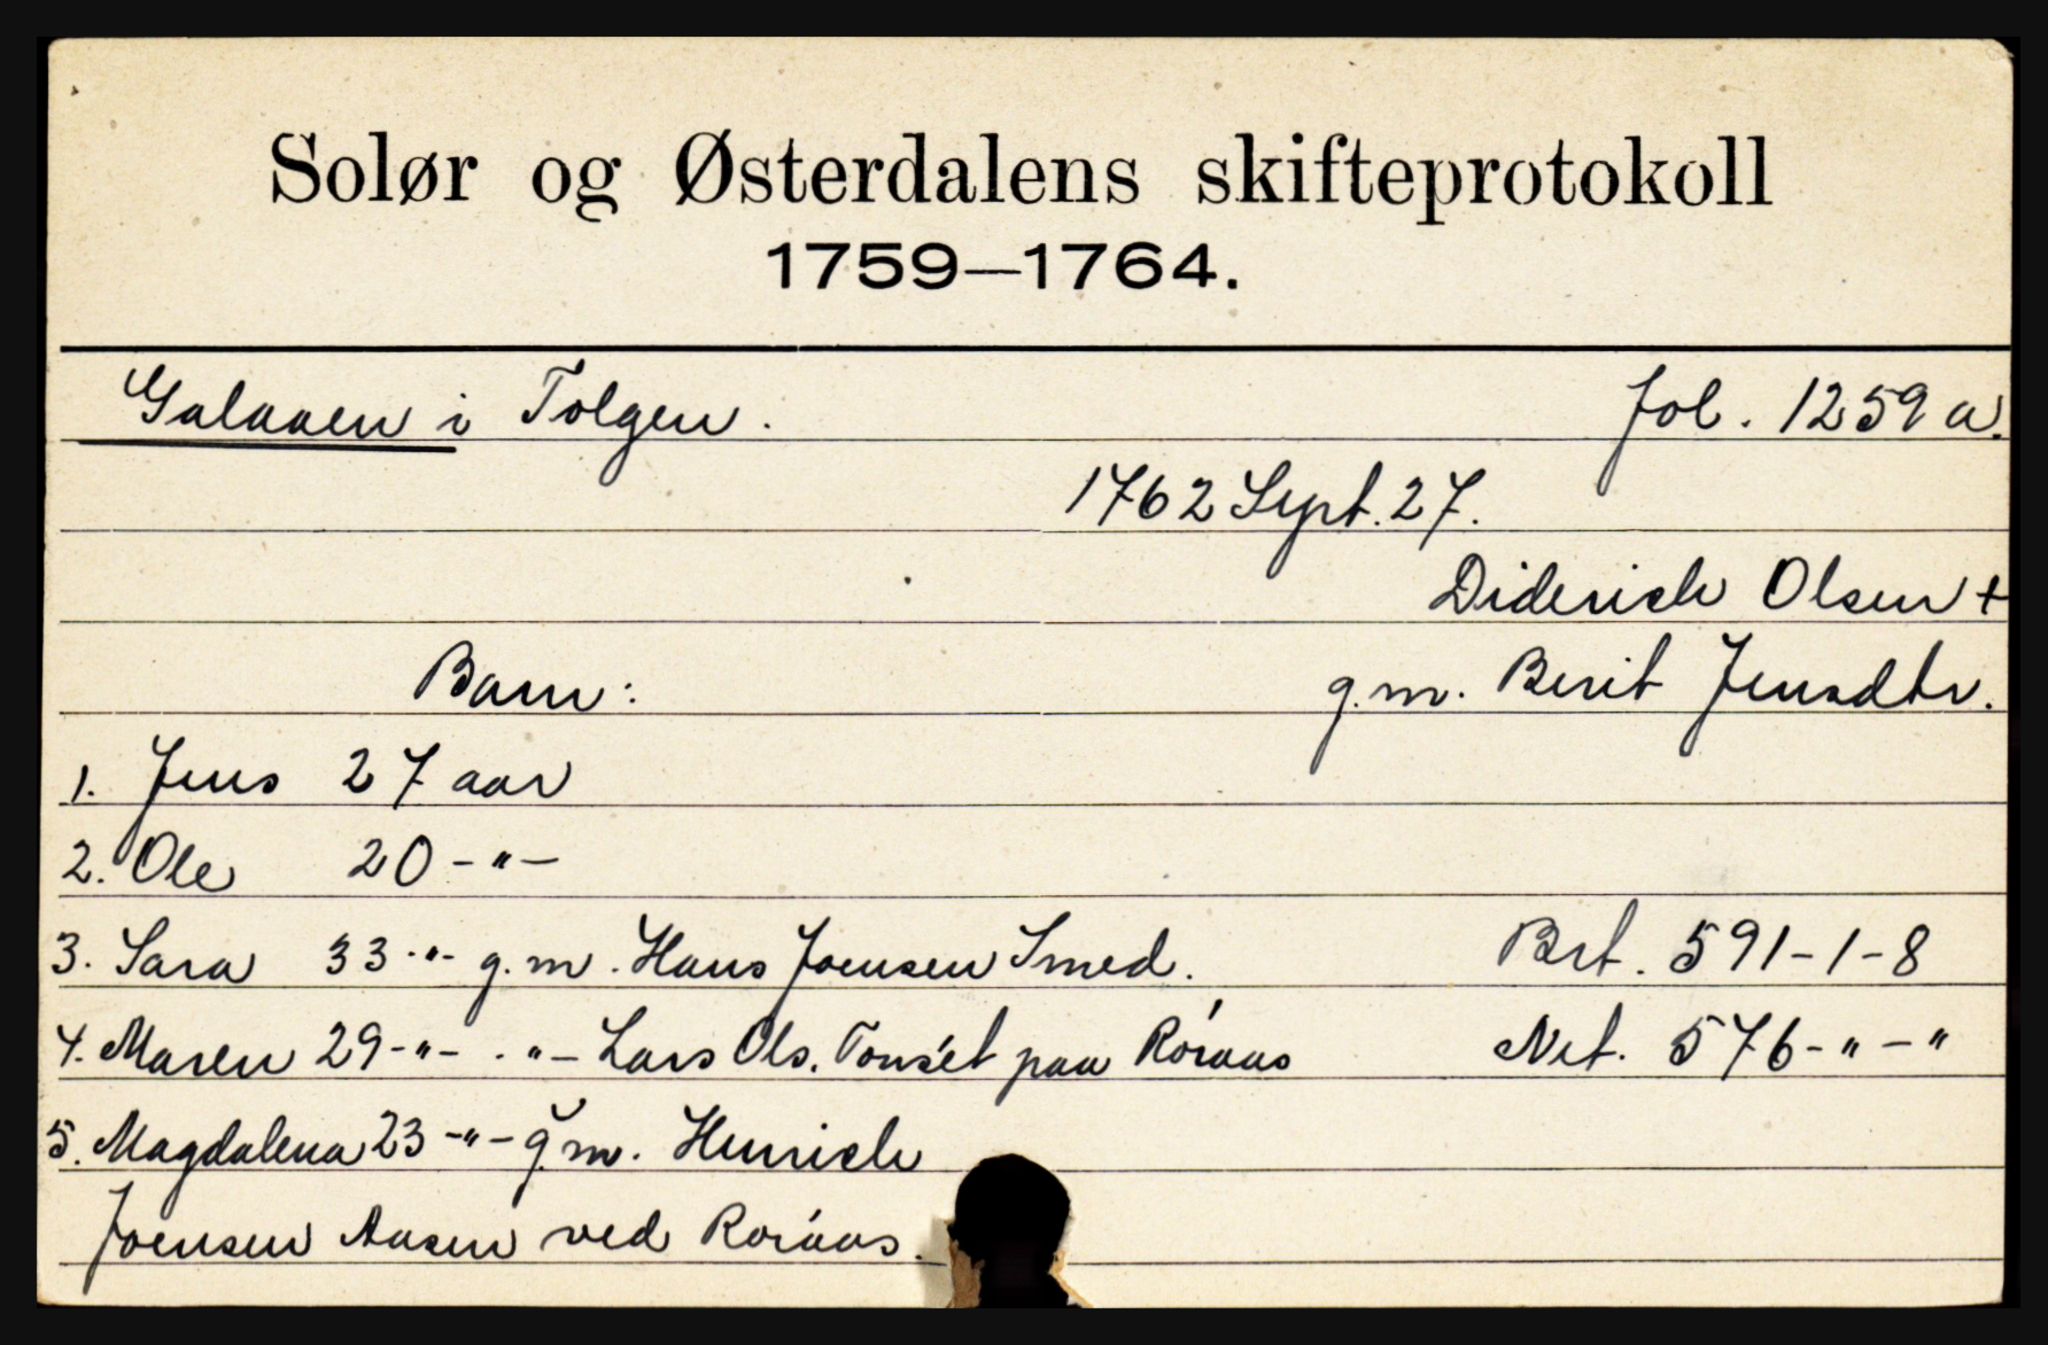 Solør og Østerdalens skifteprotokoll
1759—1764.
Galaaen i Tolgen. Fol. 1259 a.
1762 Sept. 27.
Diderich Olsen +
Barn: g.m. Berit Jensdtr.
1. Jens 27 aar
2. Ole 20 -"-
3. Sara 33 -"- g.m. Hans Joensen Smed. Brt. 591-1-8
4. Maren 29 -"- -"- Lars Ols. Tønset paa Røraas Net. 576-"-"
5. Magdalena 23 -"- g.m. Henrich
Joensen Aasen ved Røraas.